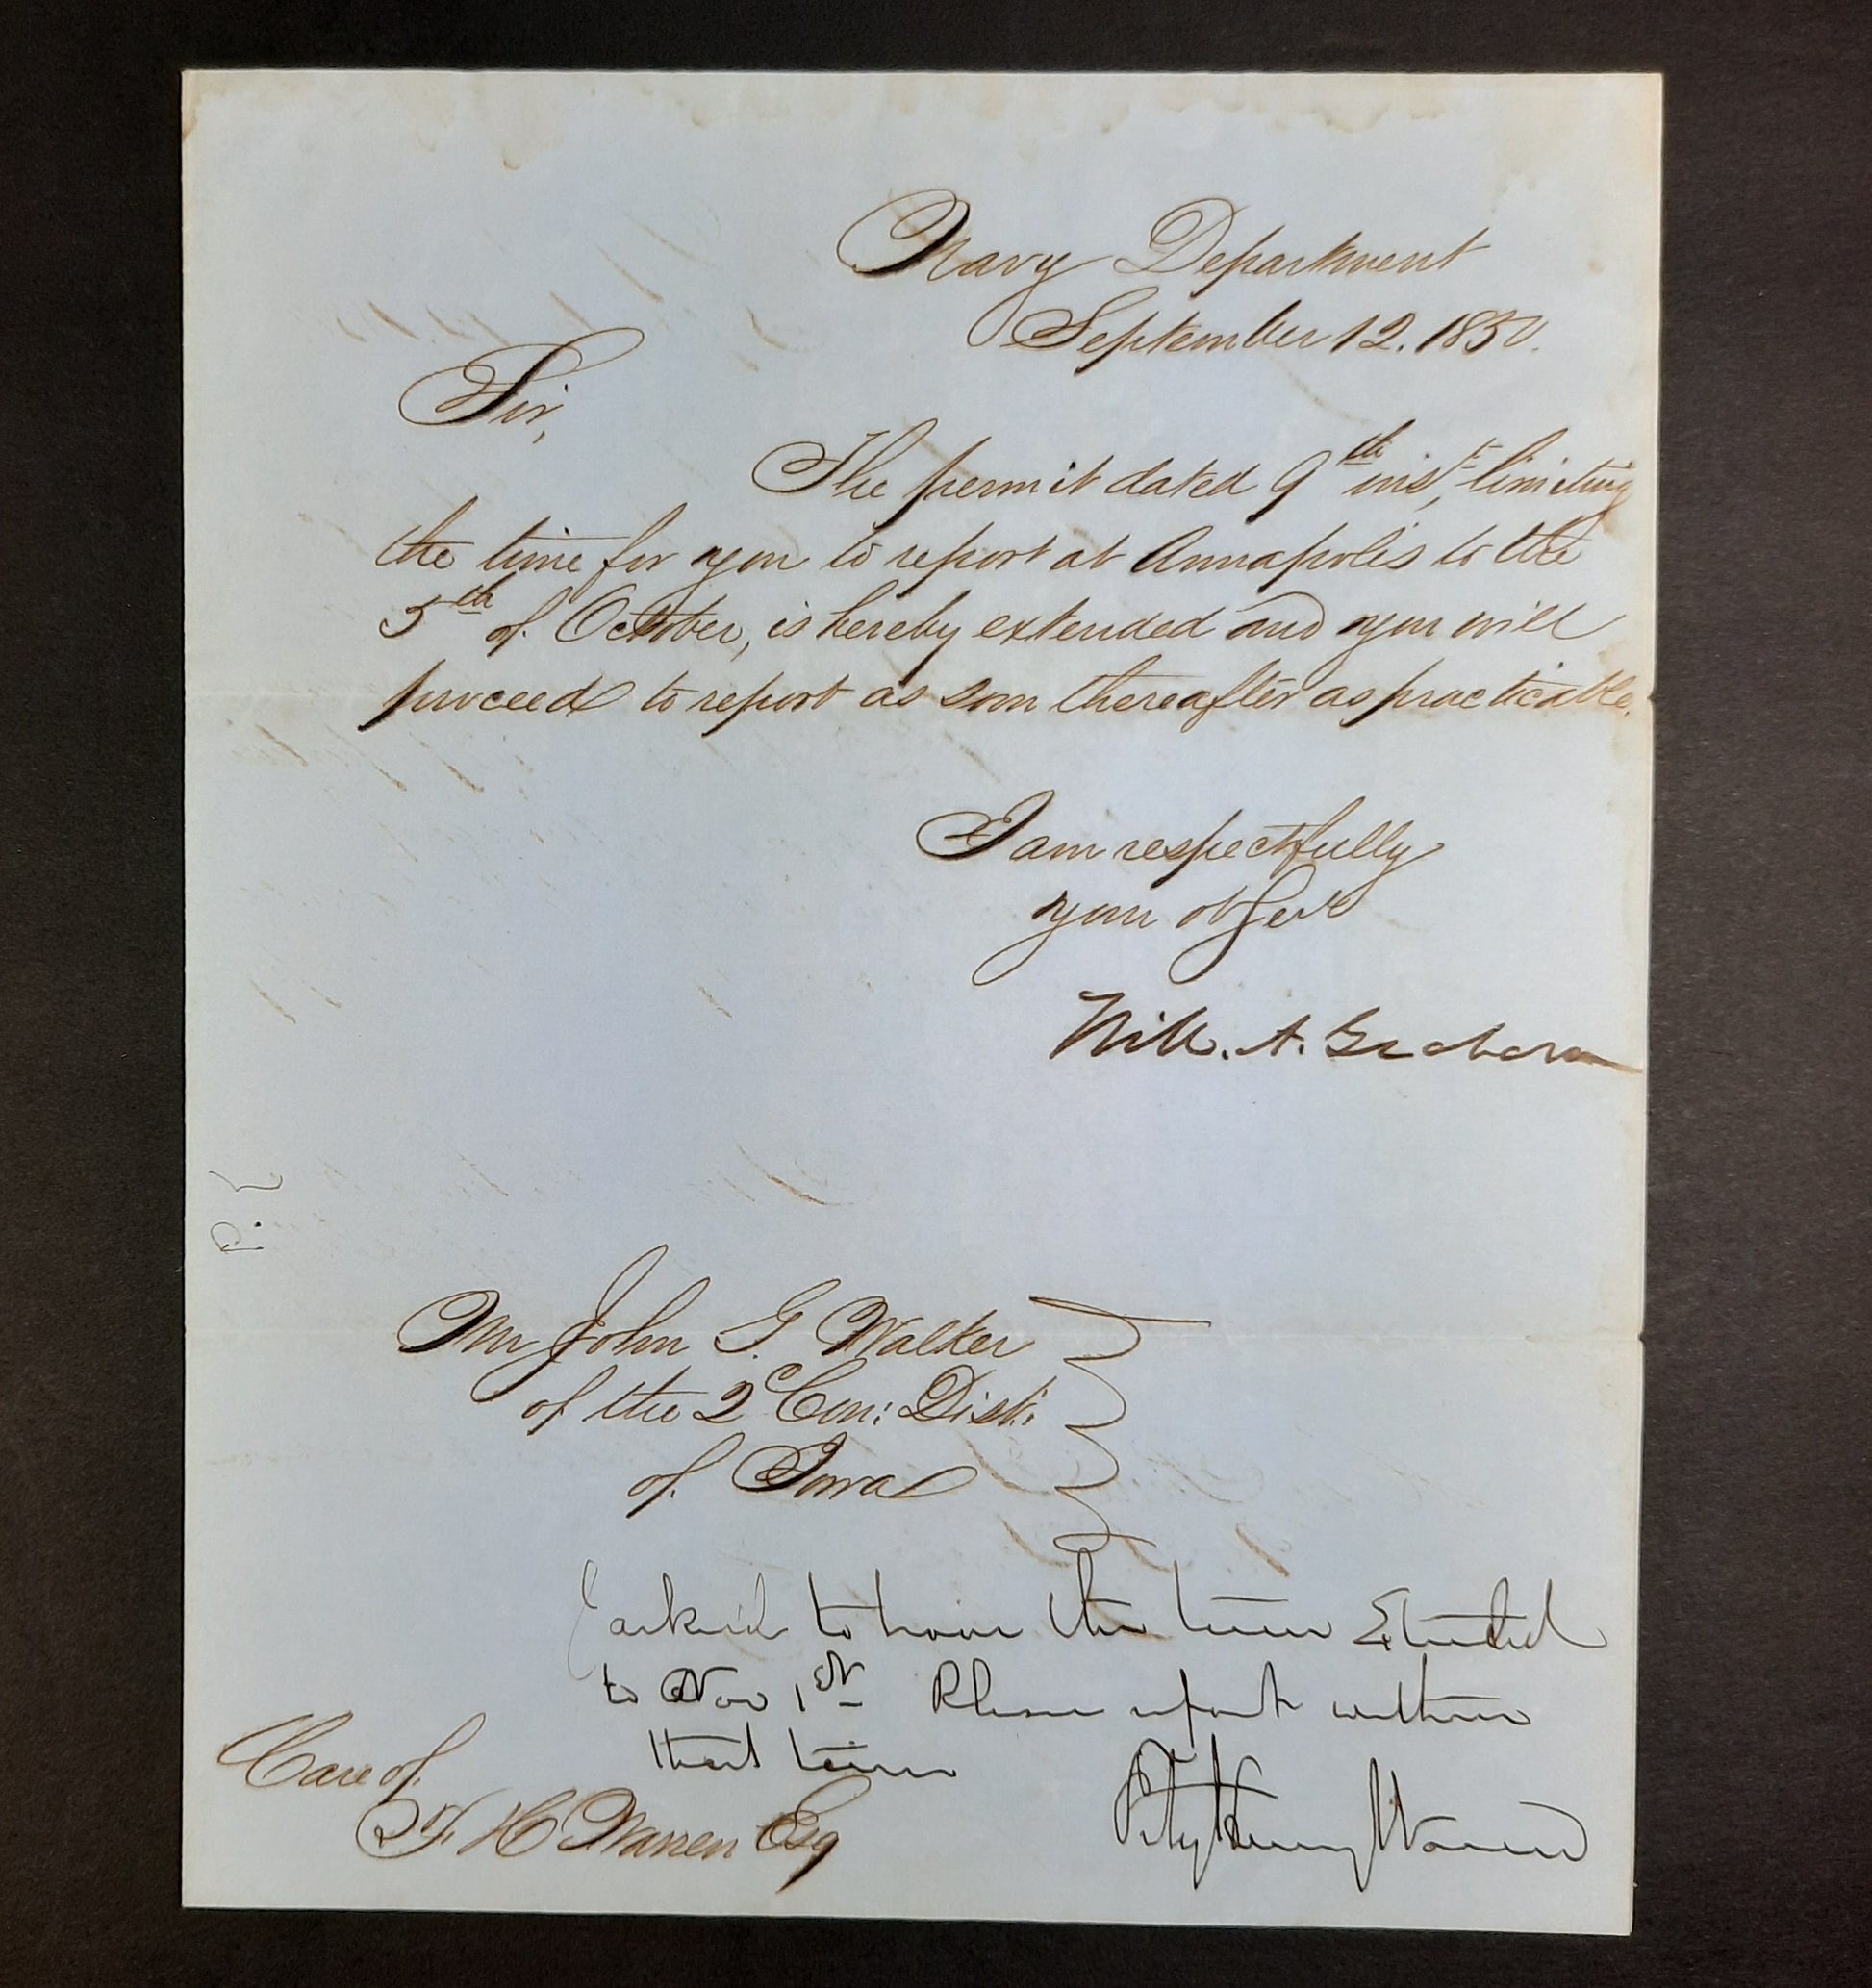 Navy Department
September 12. 1850.
Sir,
The permit dated 9th inst, limiting
the time for you to report at Annapolis to the
5th of October, is hereby extended and you will
proceed to report as soon thereafter as practicable.
I am respectfully
your obt Servt
Will. A. Graham
Mr John G. Walker
of the 2d Con: Dist:
of Iowa
I asked to have the time Extended
to Nov 1st Please report within
that time
Fitz Henry Warren
Care of
F. H Warren Esq